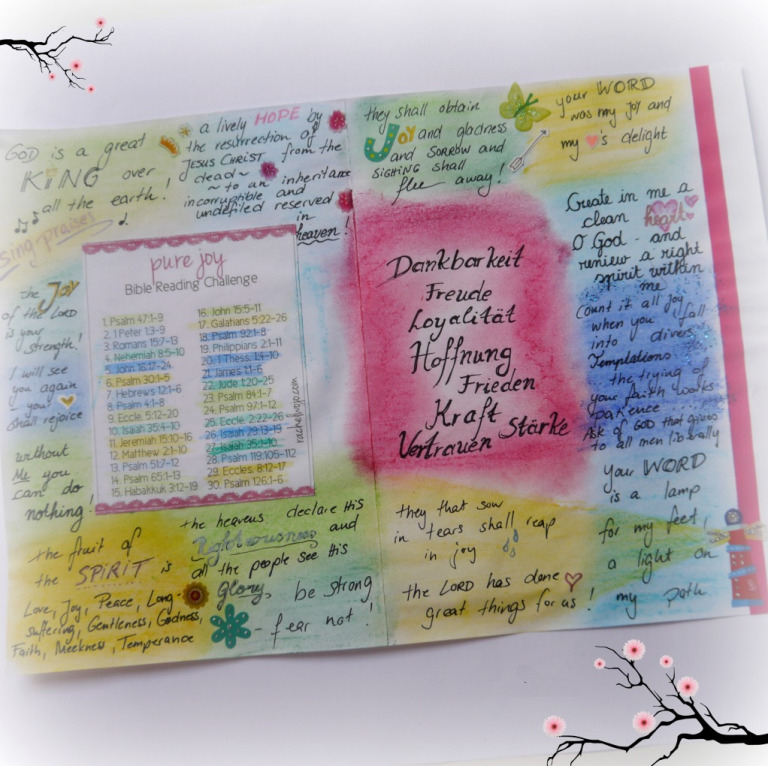 GOD is a great
KiNG over
all the earth!
sing praises
a lively HOPE by
the resurrection of
JESUS CHRIST from the
dead ~
~ to an inheritance
incorruptible and
undefiled reserved
in
heaven!
the JOY
of the LORD
is your
strength!
I will see
you again
- you
shall rejoice
without
Me you
can do
nothing!
pure joy
Bible Reading Challenge
1. Psalm 47:1-9
2. 1 Peter 1:3-9
3. Romans 15:7-13
4. Nehemiah 8:5-10
5. John 16:17-24
6. Psalm 30:1-5
7. Hebrews 12:1-6
8. Psalm 4:1-8
9. Eccle. 5:12-20
10. Isaiah 35:4-10
11. Jeremiah 15:10-16
12. Matthew 2:1-10
13. Psalm 51:7-12
14. Psalm 65:1-13
15. Habakkuk 3:12-19
16. John 15:5-11
17. Galatians 5:22-26
18. Psalm 92:1-8
19. Philippians 2:1-11
20. 1 Thess. 1:4-10
21. James 1:1-6
22. Jude 1:20-25
23. Psalm 84:1-7
24. Psalm 97:1-12
25. Eccle. 2:22-26
26. Isaiah 29:13-19
27. Isaiah 35:1-10
28. Psalm 119:105-112
29. Eccles. 8:12-17
30. Psalm 126:1-6
rachelwojo.com
the fruit of
the SPiRiT is
Love, Joy, Peace, Long-
suffering, Gentleness, Godness,
Faith, Meekness, Temperance
the heavens declare this
Righteousness and
all the people see this
Glory, be strong
- fear not!
they shall obtain
Joy and gladness
and SORROW and
SIGHING shall
flee away!
your WORD
was my joy and
my s delight
Dankbarkeit
Freude
Loyalität
Hoffnung
Frieden
Kraft
Vertrauen Stärke
Create in me a
clean heart
O God - and
renew a right
spirit within
me
Count it all joy
when you fall
into divers
Temptations
the trying of
your faith works
patience
Ask of GOD that gives
to all men liberally
they that sow
in tears shall reap
in joy
the LORD has done
great things for us!
your WORD
is a lamp
for my feet,
a light on
my path